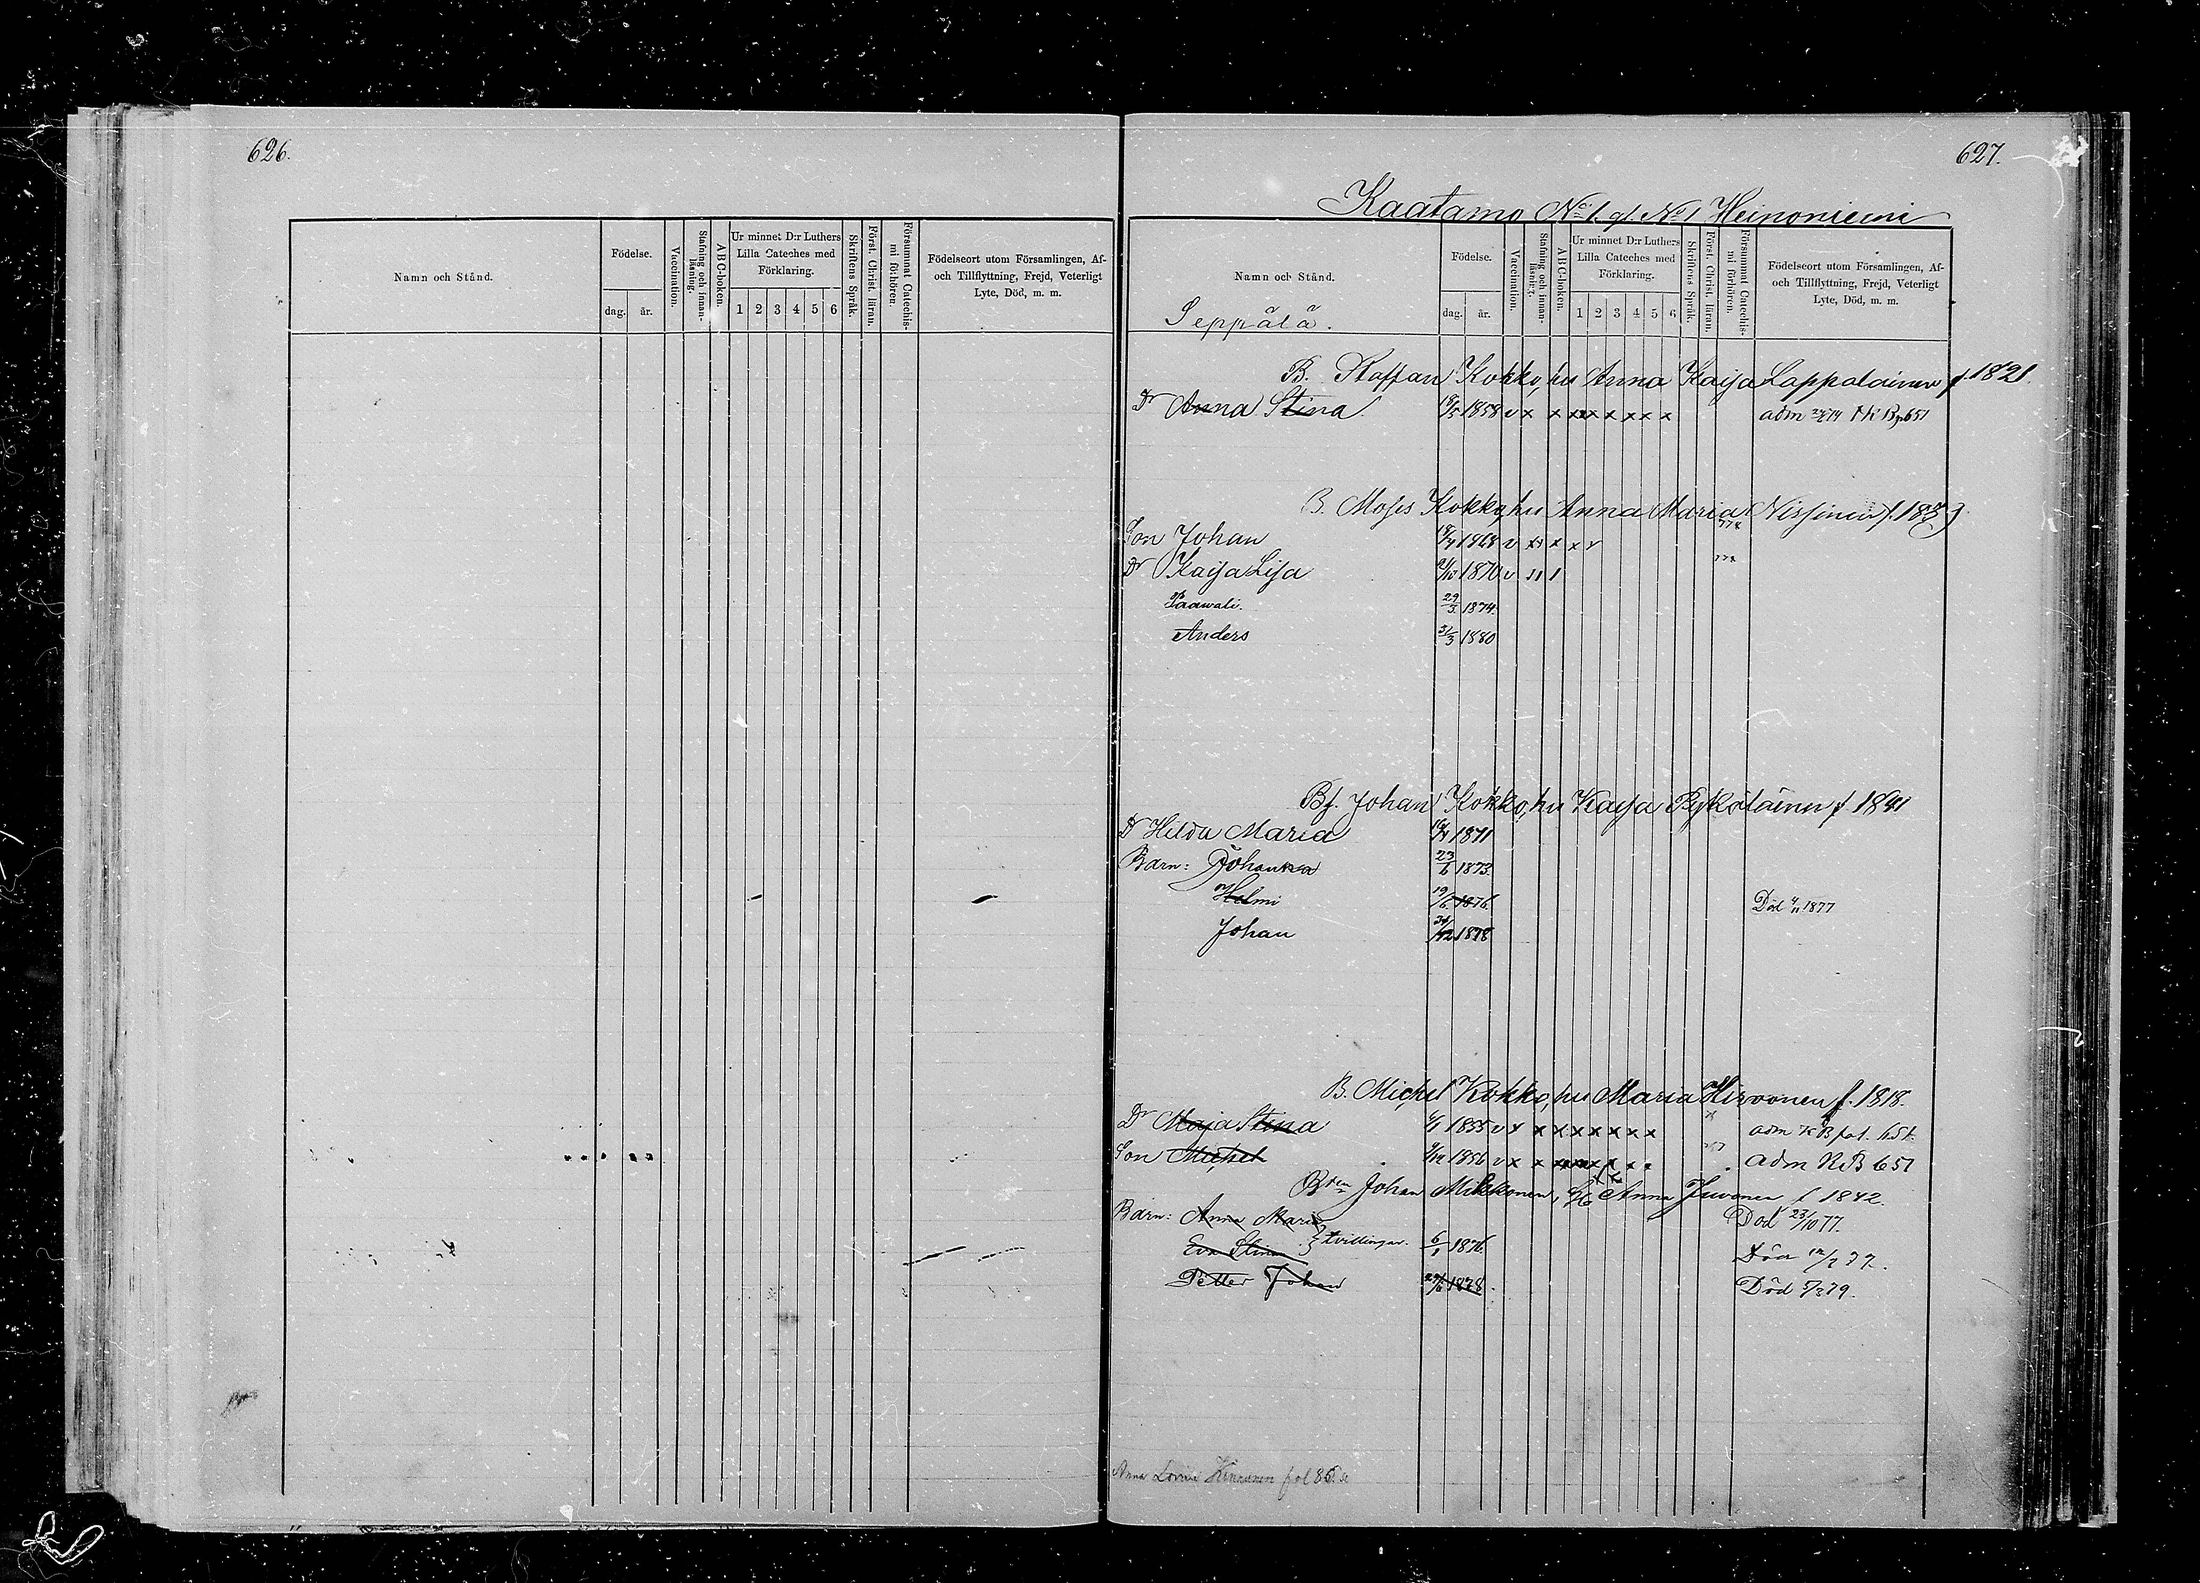 626.
Namn och Stånd.
Födelse.
dag.
år.
Vaccination.
Stafning och innanläsning.
ABC-boken.
Ur minnet D:r Luthers Lilla Cateches med Förklaring.
1 2 3 4 5 6
Skriftens Språk.
Först. Christ. läran.
Försummat Catechismi förhören.
Födelseort utom Församlingen, Af- och Tillflyttning, Frejd, Veterligt Lyte, Död, m. m.
627.
Kaatamo No 1. gl. No 1 Heinoniemi
Namn och Stånd.
Födelse.
dag.
år.
Vaccination.
Stafning och innanläsning.
ABC-boken.
Ur minnet D:r Luthers Lilla Cateches med Förklaring.
1 2 3 4 5 6
Skriftens Språk.
Först. Christ. läran.
Försummat Catechismi förhören.
Födelseort utom Församlingen, Af- och Tillflyttning, Frejd, Veterligt Lyte, Död, m. m.
Seppälä.
B. Staffan Kokko, hu Anna Kaisa Lappalainen f. 1821.
Dr Anna Stina 1858 v x x x x x x x x adm
B. Moses Kokko, hu Anna Maria Nissinen
Son Johan 1868 v x x x x
Dr Kaisa Lisa 1870 v
Paawali. 29/5 1874.
Anders 31/3 1880
Bf. Johan Kokko, hu Kaisa f 1841
Dr Hilda Maria 1871
Barn: Johanna 23/6 1873.
Helmi 19/6 1876. Död 4/11 1877
Johan 1878
B. Michel Kokko, hu Maria Hirvonen f. 1818.
Dr Maja Stina 1855 v x x x x x x x x adm KB fol. 651.
Son Michel 1856 v x x adm KB 651
Johan Mikkonen, Anna Juvonen f 1842.
Barn: Anna Maria Död 23/10 77.
Eva Stina } tvillingar. 6/1 1876 Död
Petter Johan 1878. Död
Anna Lovisa fol